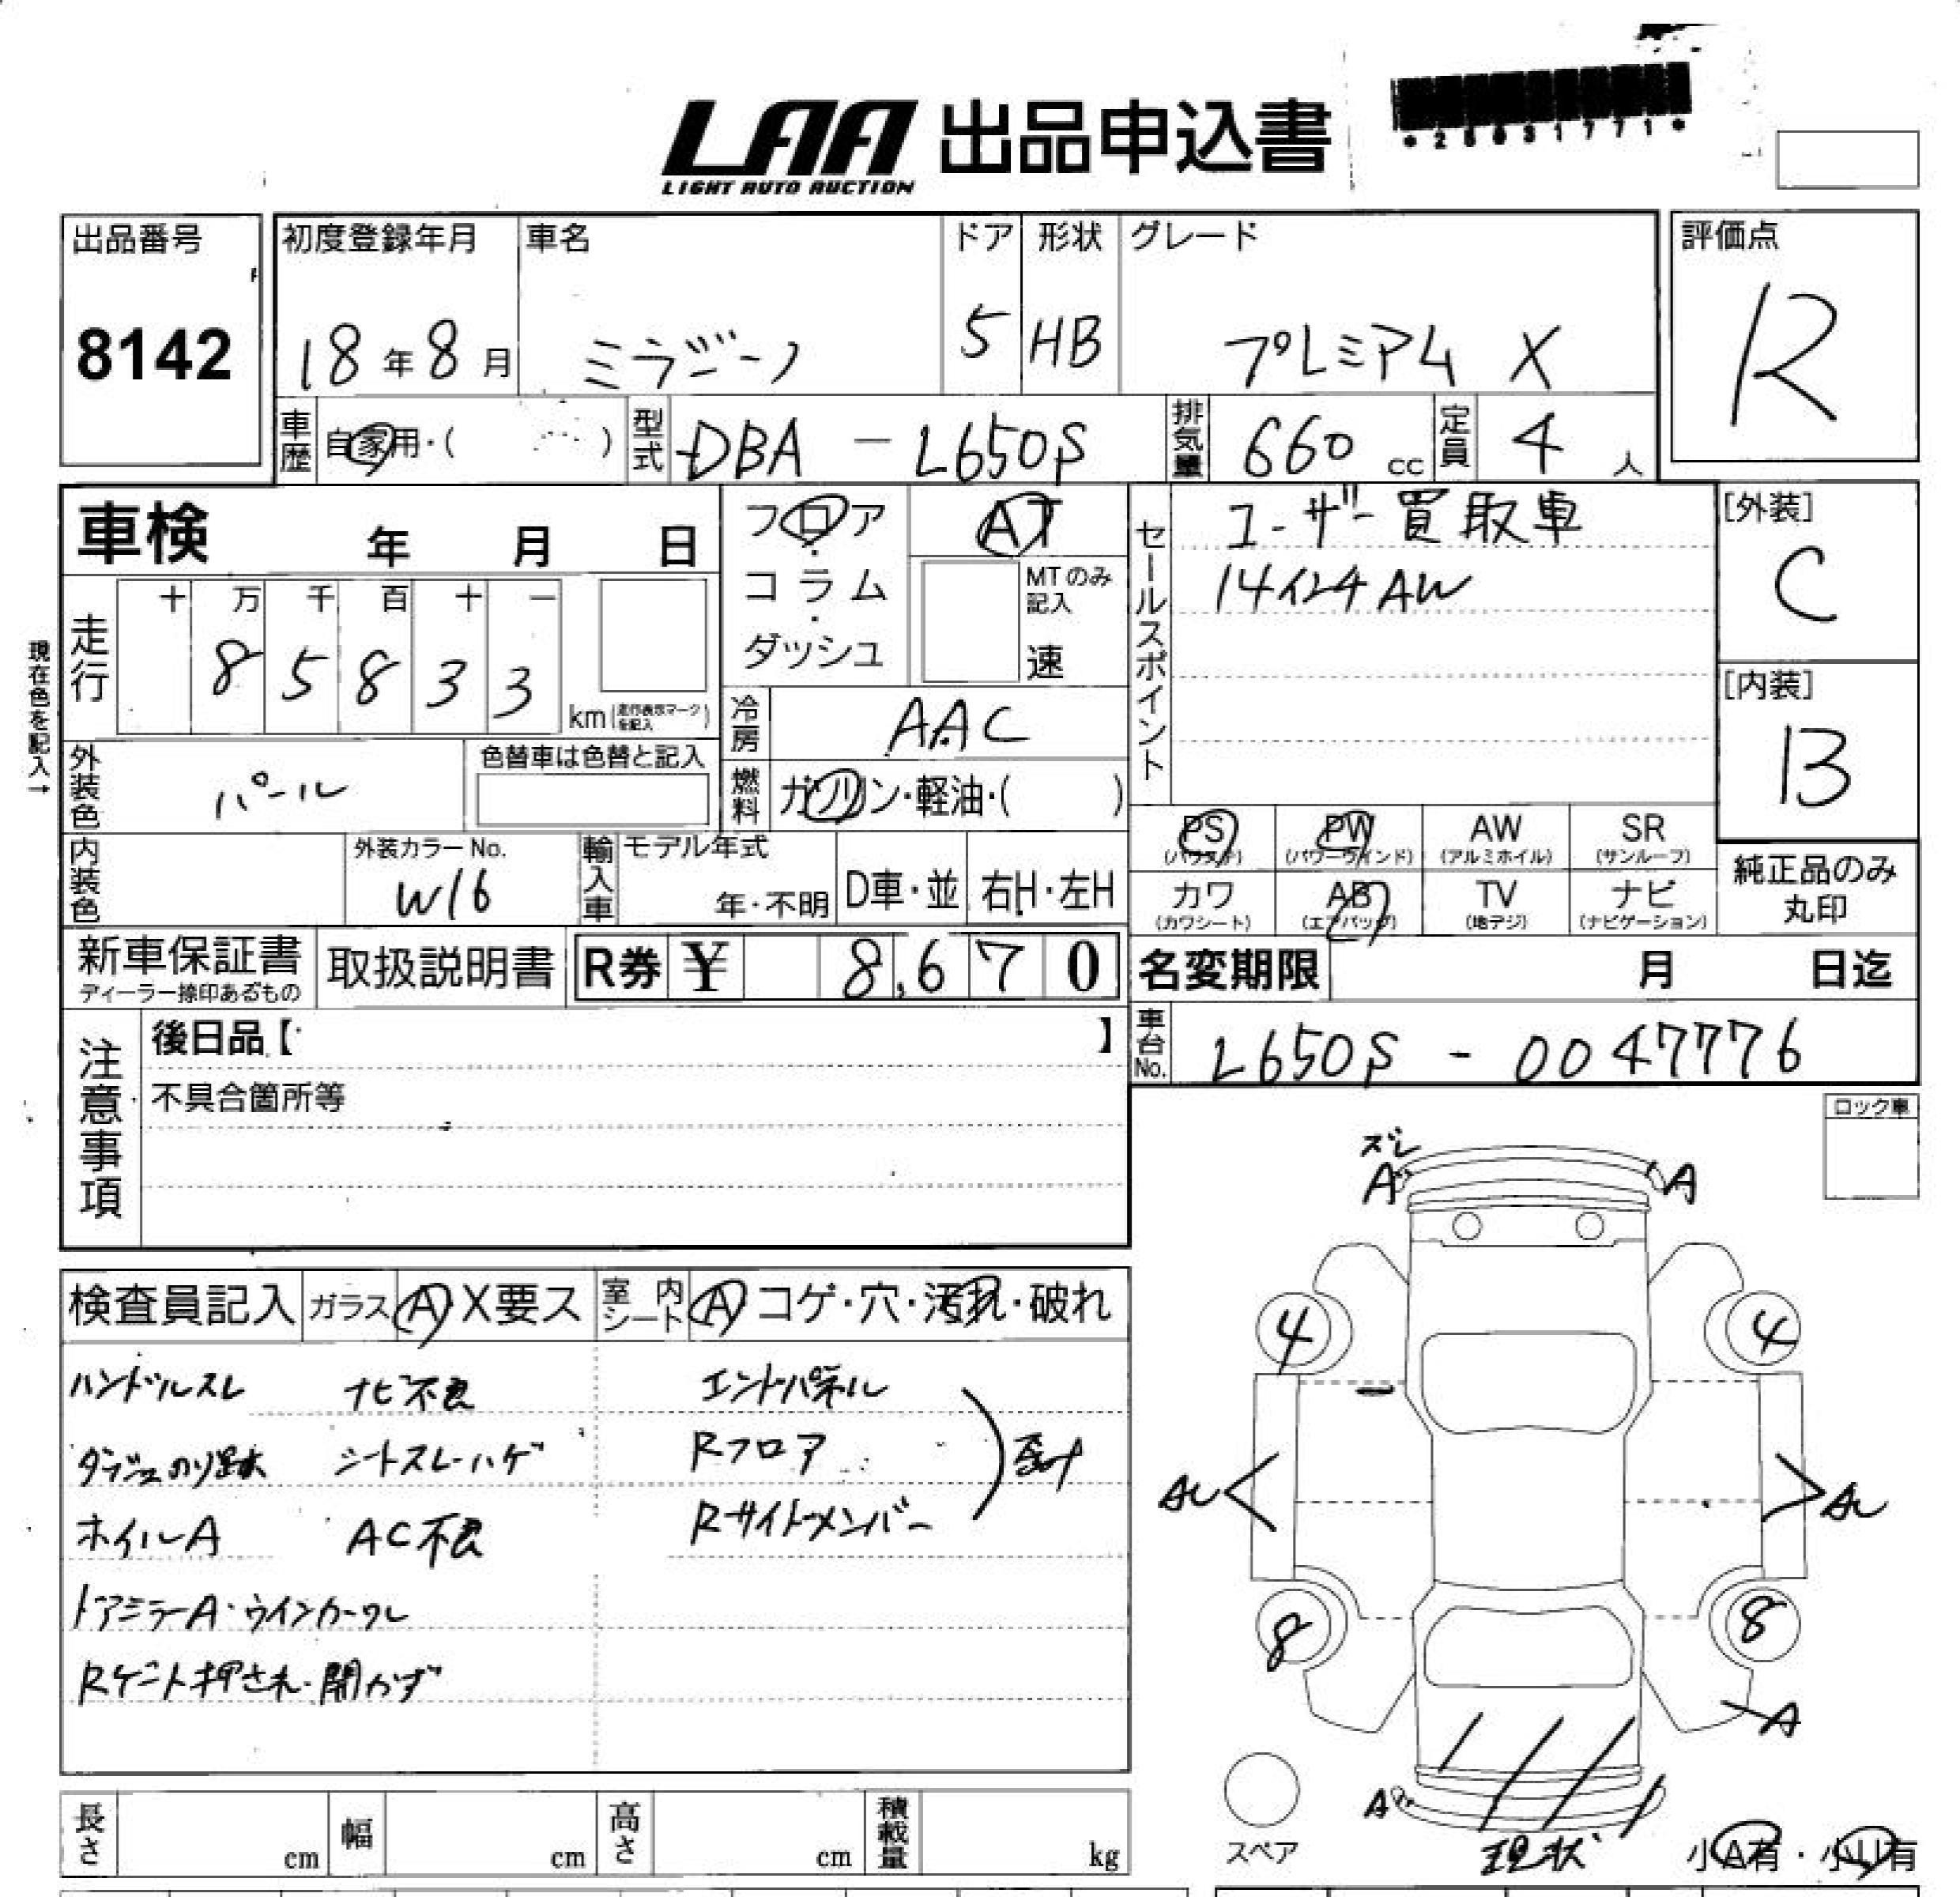 LAA 出品申込書
LIGHT AUTO AUCTION
出品番号
8142
初度登録年月
18年8月
車名
ミラジーノ
ドア
5
形状
HB
グレード
プレミアム X
評価点
R
車歴 自家用・( )
型式 DBA - L650S
排気量 660 cc
定員 4 人
車検 年 月 日
フロア・コラム・ダッシュ
AT
MTのみ記入
速
セールスポイント
ユーザー買取車
14インチAW
[外装]
C
[内装]
B
現在色を記入→
走行
十 万 千 百 十 一
8 5 8 3 3
km(走行表示マークを記入)
冷房 AAC
燃料 ガソリン・軽油・( )
外装色 パール
色替車は色替と記入
内装色
外装カラーNo.
W16
輸入車 モデル年式
年・不明 D車・並 右H・左H
PS (パワステ)
PW (パワーウインド)
AW (アルミホイル)
SR (サンルーフ)
カワ (カワシート)
AB (エアバッグ)
TV (地デジ)
ナビ (ナビゲーション)
純正品のみ
丸印
新車保証書
ディーラー捺印あるもの
取扱説明書
R券 ¥ 8,670
名変期限 月 日迄
車台No. L650S - 0047776
注意事項
後日品【 】
不具合箇所等
ロック車
検査員記入 ガラス A X要ス 室内シート A コゲ・穴・汚れ・破れ
ハンドルスレ ナビ不良 エンドパネル
ダッシュのり跡 シートスレ・ハゲ Rフロア
ホイルA AC不良 Rサイドメンバー
ドアミラーA・ウインカーワレ
Rゲート押され・開かず
ズレ
A A
4 4
AU AU
8 8
A
A
スペア
現状
小A有・小U有
長さ cm 幅 cm 高さ cm 積載量 kg